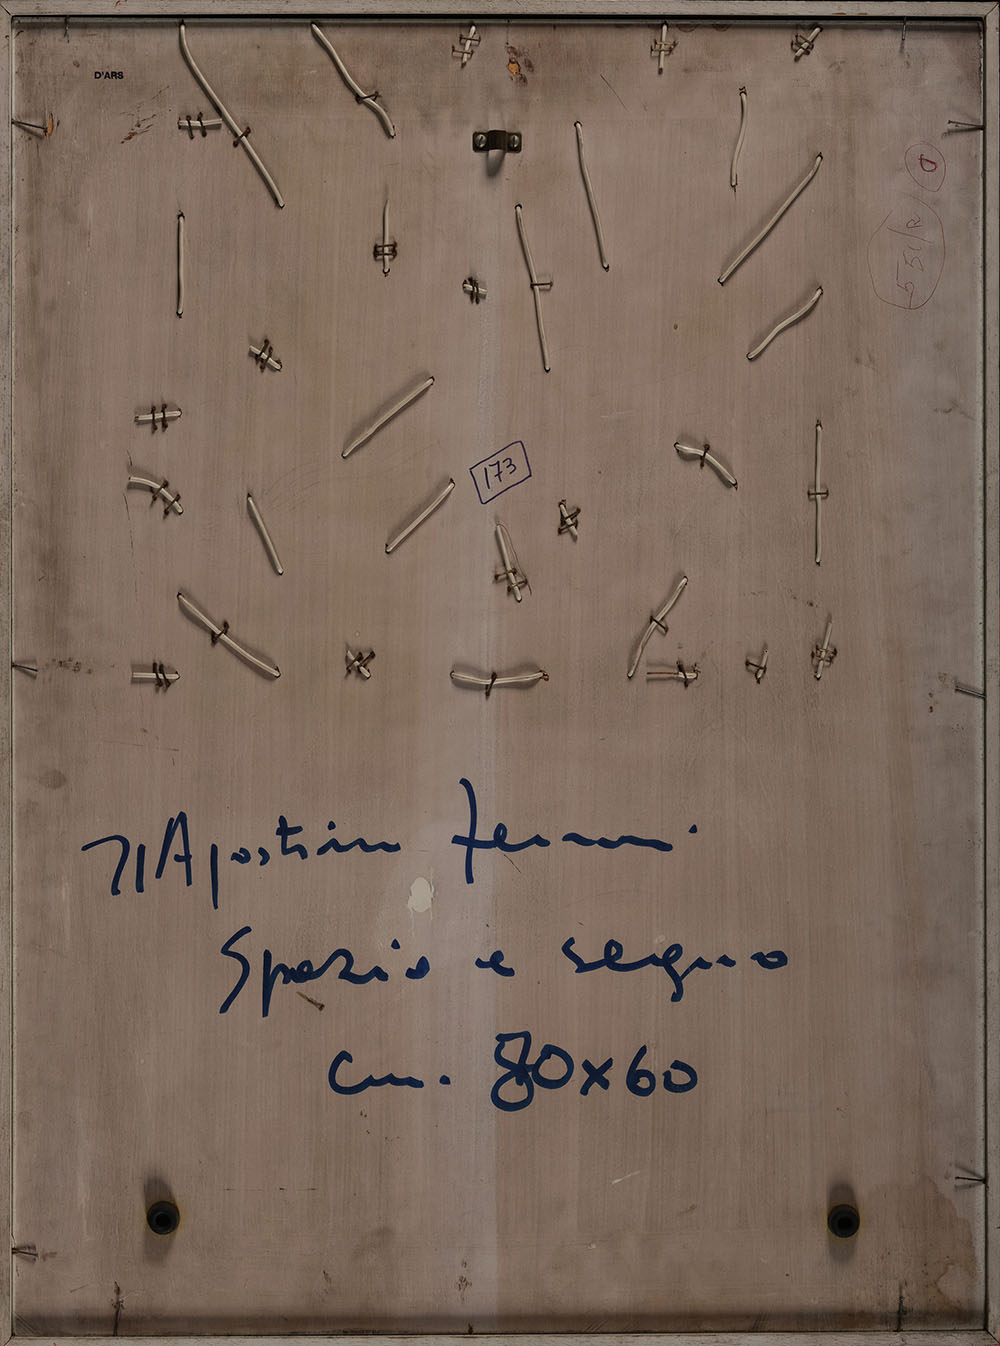 D'ARS
55 1/R
173
Agostino Ferrari
Spazio e segno
cm. 80x60